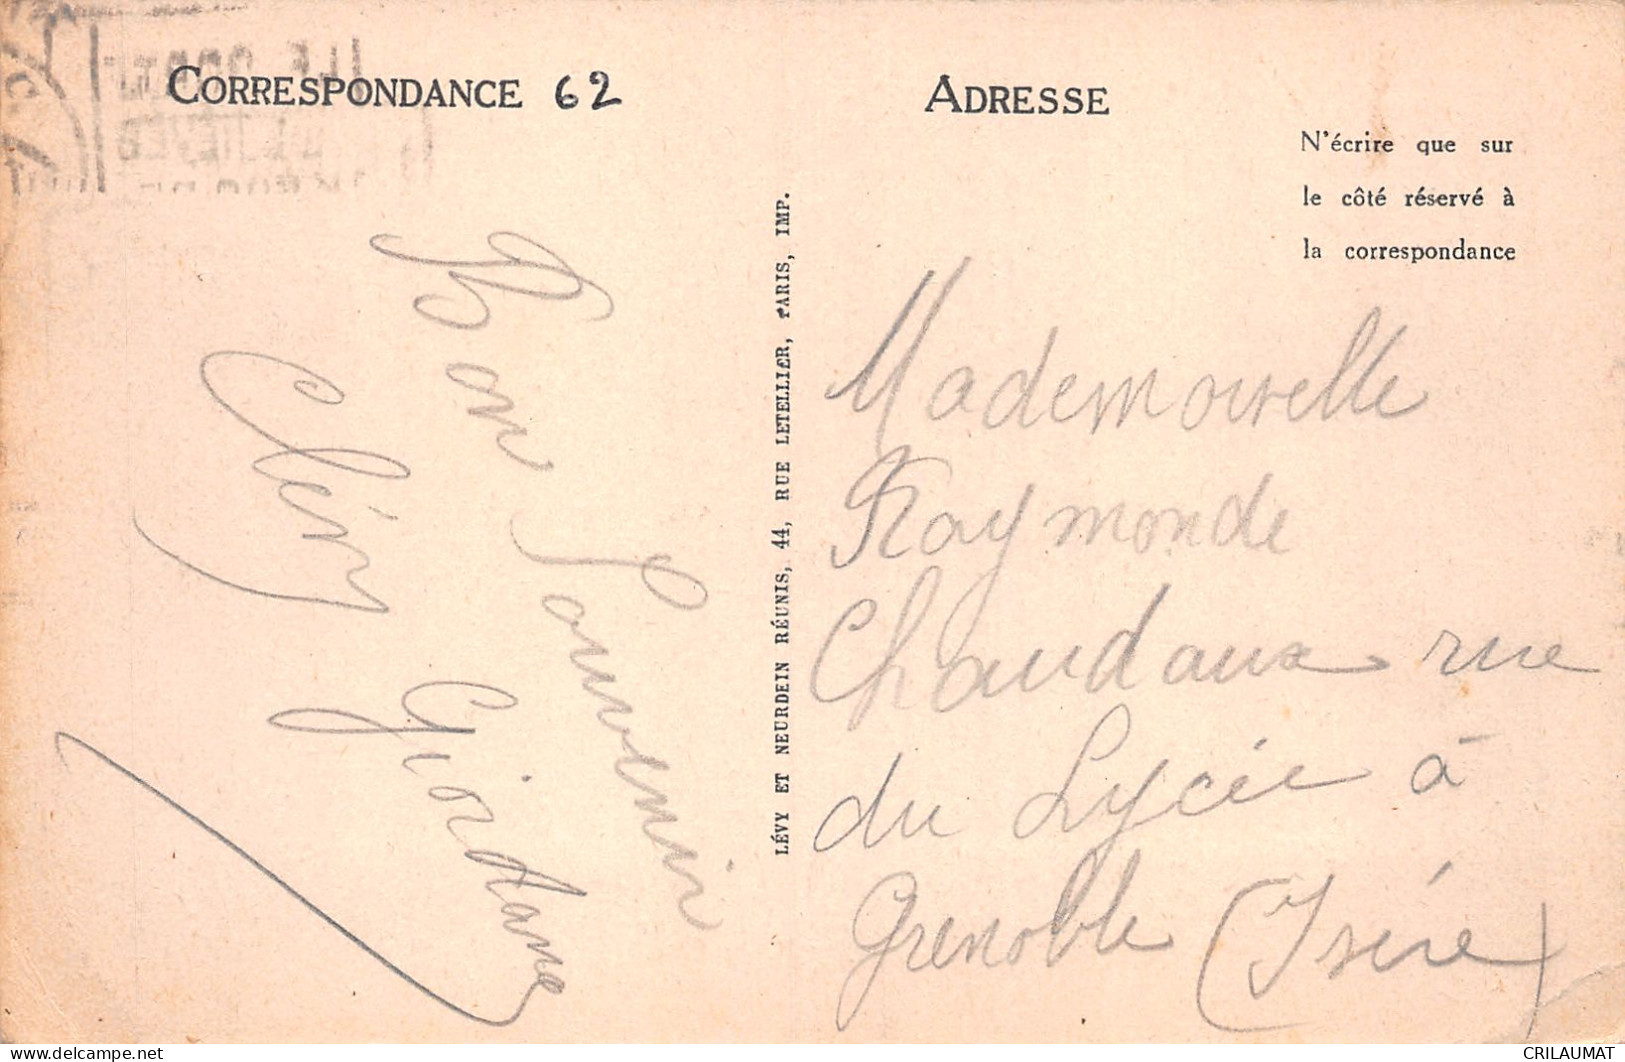 CORRESPONDANCE 62
Bon Souvenir
Cléry Giordano
LÉVY ET NEURDEIN RÉUNIS, 44, RUE LETELLIER, PARIS, IMP.
ADRESSE
N'écrire que sur
le côté réservé à
la correspondance
Mademoiselle
Raymonde
Chaudaux rue
du Lycée à
Grenoble (Isère)
CRILAUMAT